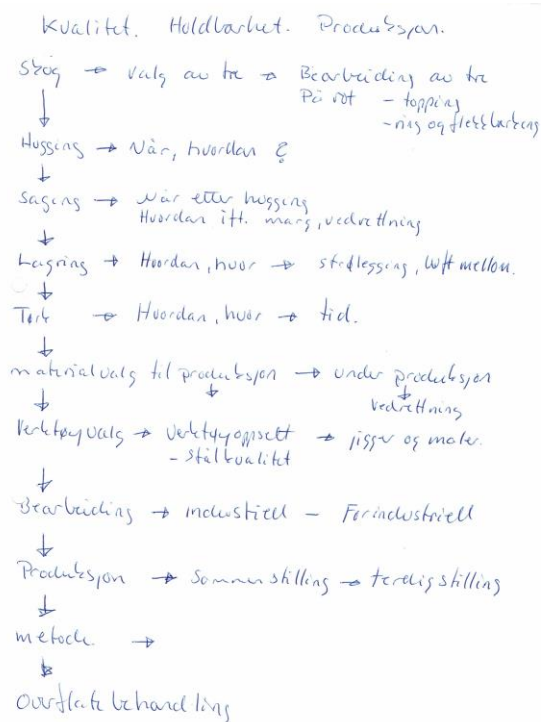 Kvalitet. Holdbarhet. Produksjon.
Skog → valg av tre → Bearbeiding av tre
På rot - topping
- ring og flekkbarking
Hugging → Når, hvordan ?
Saging → Når etter hugging
Hvordan ift. marg, vedrettning
Lagring → Hvordan, hvor → strølegging, luft mellom.
Tørk → Hvordan, hvor → tid.
materialvalg til produksjon → under produksjon
vedrettning
Verktøyvalg → verktøyoppsett → jigger og maler.
- Stålkvalitet
Bearbeiding → industriell - Førindustriell
Produksjon → Sammenstilling → ferdigstilling
metode →
Overflatebehandling